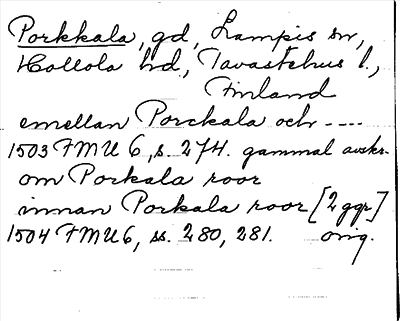 Porkkala, gd, Lampis sn,
Hollola hd., Tavastehus l.,
Finland
emellan Porckala och ----
1503 FMU 6, s. 274. gammal avskr.
om Porkala roor
innan Porkala roor [2 ggr]
1504 FMU 6, ss. 280, 281. orig.